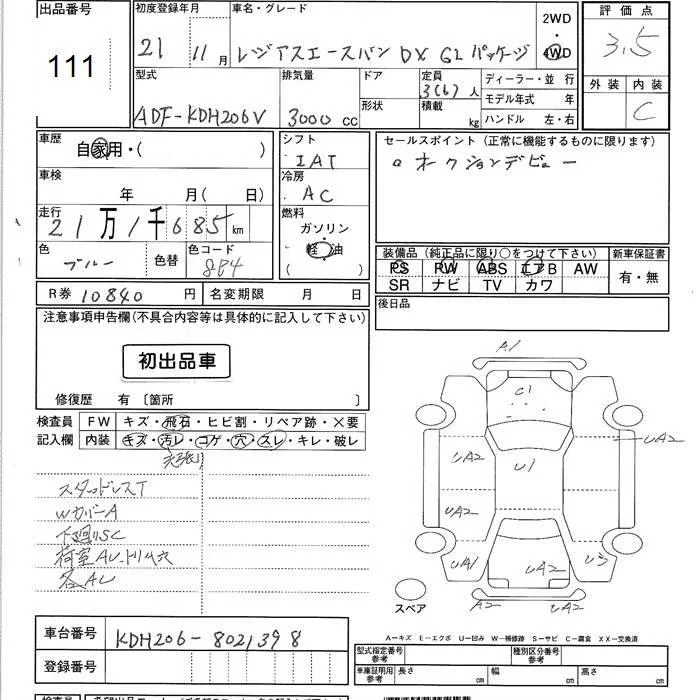 出品番号 初度登録年月 車名・グレード 2WD 評価点
111 21 11月 レジアスエースバン DX GLパッケージ ・ 4WD 3.5
型式 排気量 ドア 定員 3(6)人 ディーラー・並行 外装 内装
形状 積載 kg モデル年式 年
ADF-KDH206V 3000cc ハンドル 左・右 C
車歴 自家用・( ) シフト IAT セールスポイント(正常に機能するものに限ります)
車検 年 月(日) 冷房 AC オークションデビュー
走行 21万1千685km 燃料 ガソリン
軽油
( )
色 ブルー 色替 色コード 8P4
装備品(純正品に限り○をつけて下さい) 新車保証書
PS PW ABS エアB AW 有・無
SR ナビ TV カワ
R券 10840円 名変期限 月 日 後日品
注意事項申告欄(不具合内容等は具体的に記入して下さい)
初出品車
修復歴 有〔箇所 〕
検査員 FW キズ・飛石・ヒビ割・リペア跡・×要
記入欄 内装 キズ・汚レ・コゲ・穴・スレ・キレ・破レ
スタッドレスT
WカバーA
下廻りSC
荷室AU、トリム穴
各AU
A1
C1
UA2
UA2 U1
UA2
UA1 UA2 U3
A2 A2
スペア
車台番号 KDH206-8021398
A−キズ E−エクボ U−凹み W−補修跡 S−サビ C−腐食 XX−交換済
登録番号
型式指定番号 参考 種別区分番号 参考
車庫証明用 参考 長さ cm 幅 cm 高さ cm